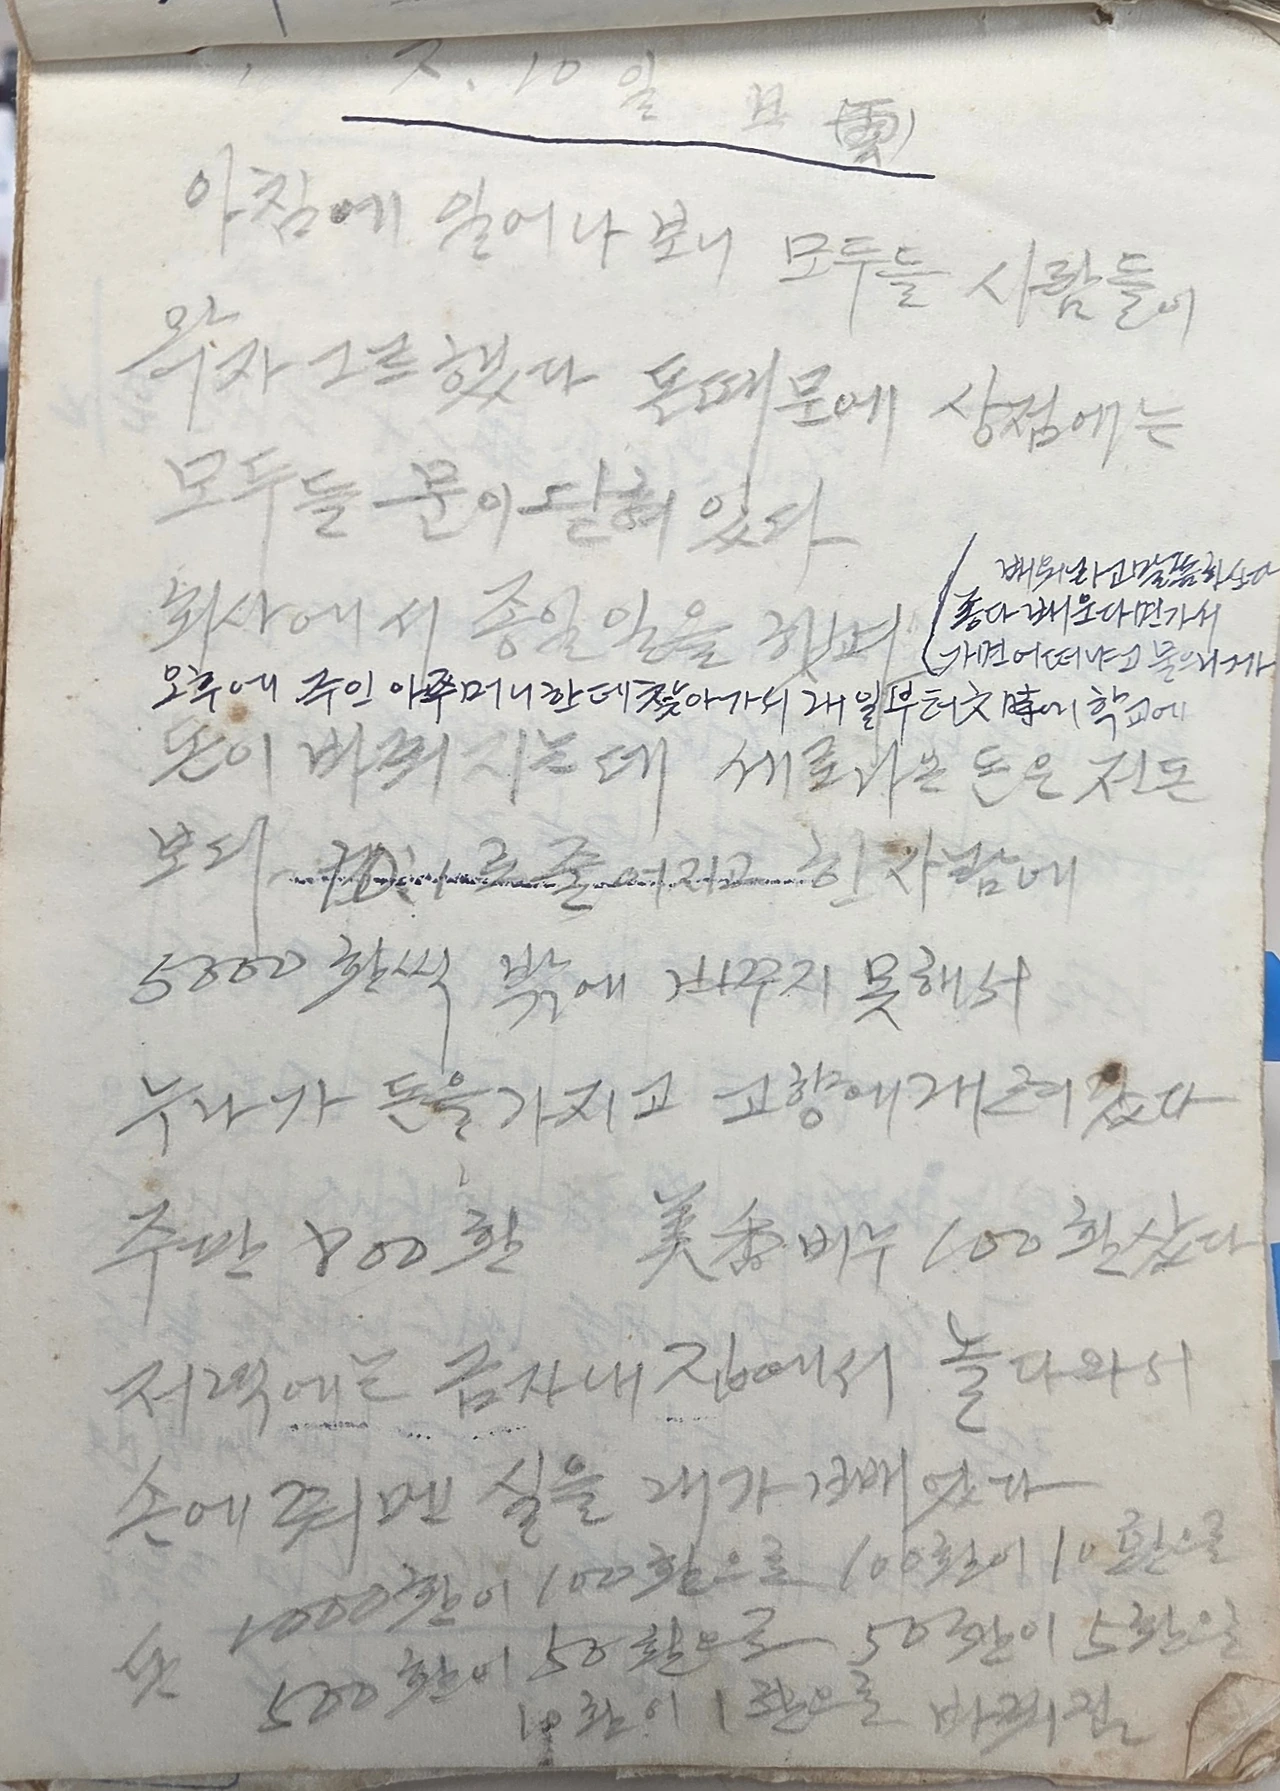 10일 日 (雲)
아침에 일어나 보니 모두들 사람들이
왁자그르했다 돈때문에 상점에는
모두들 문이 닫혀 있다
회사에서 종일 일을 하며
배워라고 말씀하신다
좋다 배운다면 가서
가면 어떠냐고 물으니까
오후에 주인 아주머니한테 찾아가서 내일부터 六時에 학교에
돈이 바뀌 지는데 새로나온 돈은 전돈
보다 로 줄어지고 한사람에
5000환씩 밖에 바꾸지 못해서
누나가 돈을 가지고 고향에 내려갔다
주판 800환 美香비누 100환 샀다
저녁에는 금자내 집에서 놀다 와서
손에 쥐멘 실을 내가 빼었다
1000환이 100환으로 100환이 10환으로
500환이 50환으로 50환이 5환으로
10환이 1환으로 바뀌전